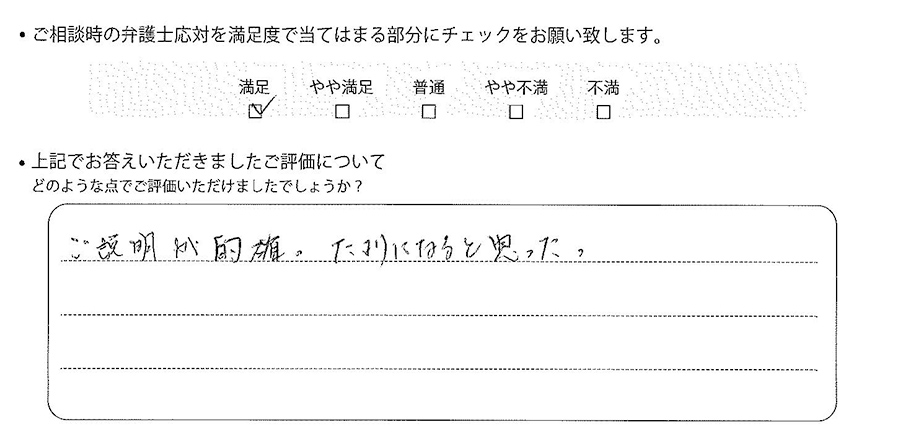 • ご相談時の弁護士応対を満足度で当てはまる部分にチェックをお願い致します。
満足 やや満足 普通 やや不満 不満
• 上記でお答えいただきましたご評価について
どのような点でご評価いただけましたでしょうか？
ご説明が的確。たよりになると思った。